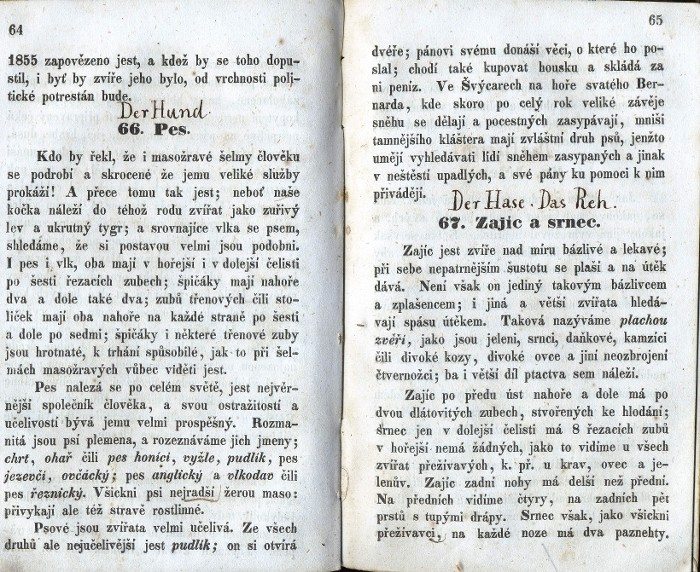 64
1855 zapovězeno jest, a kdož by se toho dopu-
stil, i byť by zvíře jeho bylo, od vrchnosti poli-
tické potrestán bude.
Der Hund.
66. Pes.
Kdo by řekl, že i masožravé šelmy člověku
se podrobí a skrocené že jemu veliké služby
prokáží! A přece tomu tak jest; neboť naše
kočka náleží do téhož rodu zvířat jako zuřivý
lev a ukrutný tygr; a srovnajíce vlka se psem,
shledáme, že si postavou velmi jsou podobni.
I pes i vlk, oba mají v hořejší i v dolejší čelisti
po šesti řezacích zubech; špičáky mají nahoře
dva a dole také dva; zubů třenových čili sto-
liček mají oba nahoře na každé straně po šesti
a dole po sedmi; špičáky i některé třenové zuby
jsou hrotnaté, k trhání spůsobilé, jak to při šel-
mách masožravých vůbec viděti jest.
Pes nalezá se po celém světě, jest nejvěr-
nější společník člověka, a svou ostražitostí a
učelivostí bývá jemu velmi prospěšný. Rozma-
nitá jsou psí plemena, a rozeznáváme jich jmeny;
chrt, ohař čili pes honicí, vyžle, pudlík, pes
jezevčí, ovčácký; pes anglický a vlkodav čili
pes řeznický. Všickni psi nejradší žerou maso:
přivykají ale též stravě rostlinné.
Psové jsou zvířata velmi učelivá. Ze všech
druhů ale nejučelivější jest pudlík; on si otvírá
65
dvéře; pánovi svému donáší věci, o které ho po-
slal; chodí také kupovat housku a skládá za
ni peníz. Ve Švýcarech na hoře svatého Ber-
narda, kde skoro po celý rok veliké závěje
sněhu se dělají a pocestných zasypávají, mniši
tamnějšího kláštera mají zvláštní druh psů, jenžto
umějí vyhledávati lidí sněhem zasypaných a jinak
v neštěstí upadlých, a své pány ku pomoci k nim
přivádějí.
Der Hase. Das Reh.
67. Zajíc a srnec.
Zajíc jest zvíře nad míru bázlivé a lekavé;
při sebe nepatrnějším šustotu se plaší a na útěk
dává. Není však on jediný takovým bázlivcem
a zplašencem; i jiná a větší zvířata hledá-
vají spásu útěkem. Taková nazýváme plachou
zvěří, jako jsou jeleni, srnci, daňkové, kamzíci
čili divoké kozy, divoké ovce a jiní neozbrojení
čtvernožci; ba i větší díl ptactva sem náleží.
Zajíc po předu úst nahoře a dole má po
dvou dlátovitých zubech, stvořených ke hlodání;
srnec jen v dolejší čelisti má 8 řezacích zubů
v hořejší nemá žádných, jako to vidíme u všech
zvířat přežívavých, k. př. u krav, ovec a je-
lenův. Zajíc zadní nohy má delší než přední.
Na předních vidíme čtyry, na zadních pět
prstů s tupými drápy. Srnec však, jako všickni
přežívavci, na každé noze má dva paznehty.